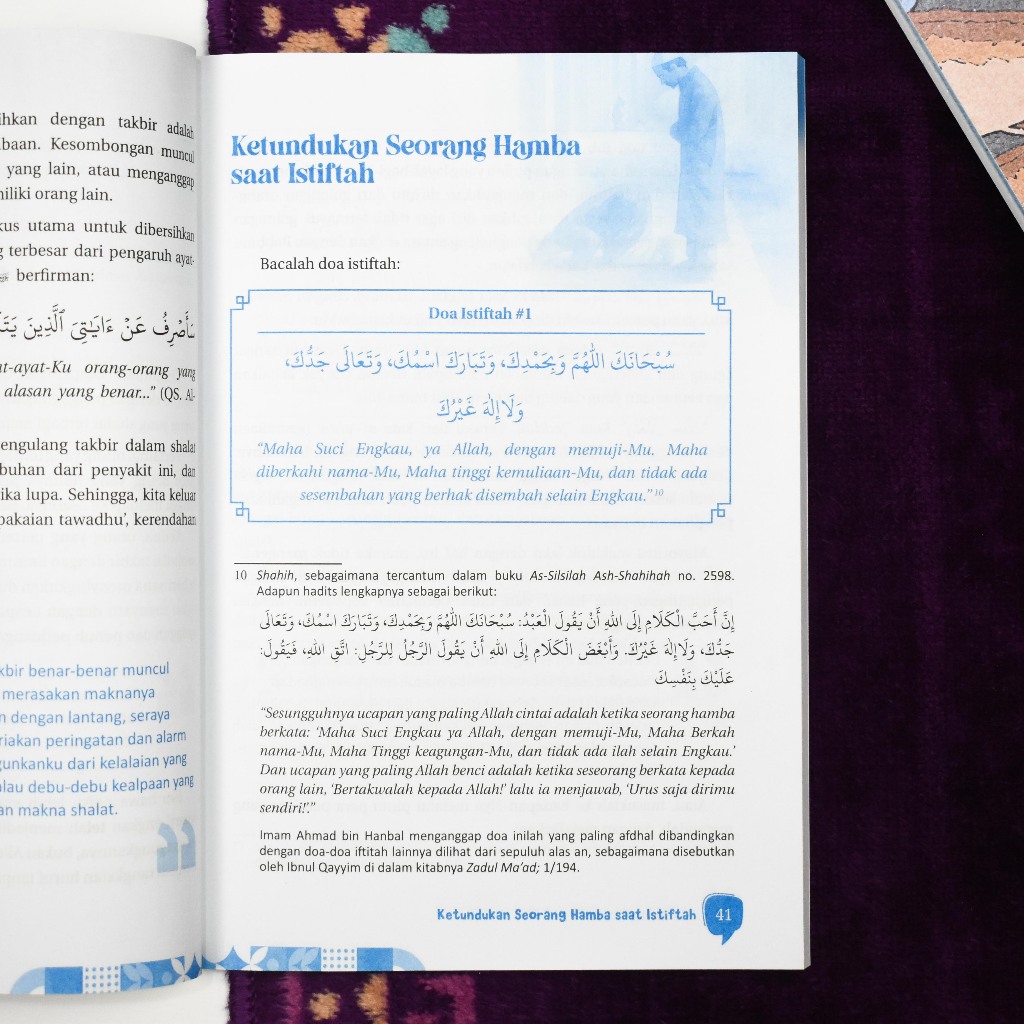 dengan takbir adalah
Kesombongan muncul
yang lain, atau menganggap
orang lain.
utama untuk dibersihkan
terbesar dari pengaruh ayat-
berfirman:
سَأَصْرِفُ عَنْ ءَايَـٰتِىَ ٱلَّذِينَ
orang-orang yang
alasan yang benar...” (QS. Al-
takbir dalam shalat
dari penyakit ini, dan
lupa. Sehingga, kita keluar
tawadhu’, kerendahan
benar-benar muncul
merasakan maknanya
dengan lantang, seraya
peringatan dan alarm
dari kelalaian yang
debu-debu kealpaan yang
makna shalat.
Ketundukan Seorang Hamba
saat Istiftah
Bacalah doa istiftah:
Doa Istiftah #1
سُبْحَانَكَ اللّٰهُمَّ وَبِحَمْدِكَ، وَتَبَارَكَ اسْمُكَ، وَتَعَالَى جَدُّكَ،
وَلَا إِلٰهَ غَيْرُكَ
“Maha Suci Engkau, ya Allah, dengan memuji-Mu. Maha
diberkahi nama-Mu, Maha tinggi kemuliaan-Mu, dan tidak ada
sesembahan yang berhak disembah selain Engkau.”10
10 Shahih, sebagaimana tercantum dalam buku As-Silsilah Ash-Shahihah no. 2598.
Adapun hadits lengkapnya sebagai berikut:
إِنَّ أَحَبَّ الْكَلَامِ إِلَى اللهِ أَنْ يَقُولَ الْعَبْدُ: سُبْحَانَكَ اللّٰهُمَّ وَبِحَمْدِكَ، وَتَبَارَكَ اسْمُكَ، وَتَعَالَى
جَدُّكَ، وَلَا إِلٰهَ غَيْرُكَ. وَأَبْغَضَ الْكَلَامِ إِلَى اللهِ أَنْ يَقُولَ الرَّجُلُ لِلرَّجُلِ: اتَّقِ اللهِ، فَيَقُولَ:
عَلَيْكَ بِنَفْسِكَ
“Sesungguhnya ucapan yang paling Allah cintai adalah ketika seorang hamba
berkata: ‘Maha Suci Engkau ya Allah, dengan memuji-Mu, Maha Berkah
nama-Mu, Maha Tinggi keagungan-Mu, dan tidak ada ilah selain Engkau.’
Dan ucapan yang paling Allah benci adalah ketika seseorang berkata kepada
orang lain, ‘Bertakwalah kepada Allah!’ lalu ia menjawab, ‘Urus saja dirimu
sendiri!’.”
Imam Ahmad bin Hanbal menganggap doa inilah yang paling afdhal dibandingkan
dengan doa-doa iftitah lainnya dilihat dari sepuluh alas an, sebagaimana disebutkan
oleh Ibnul Qayyim di dalam kitabnya Zadul Ma’ad; 1/194.
Ketundukan Seorang Hamba saat Istiftah 41